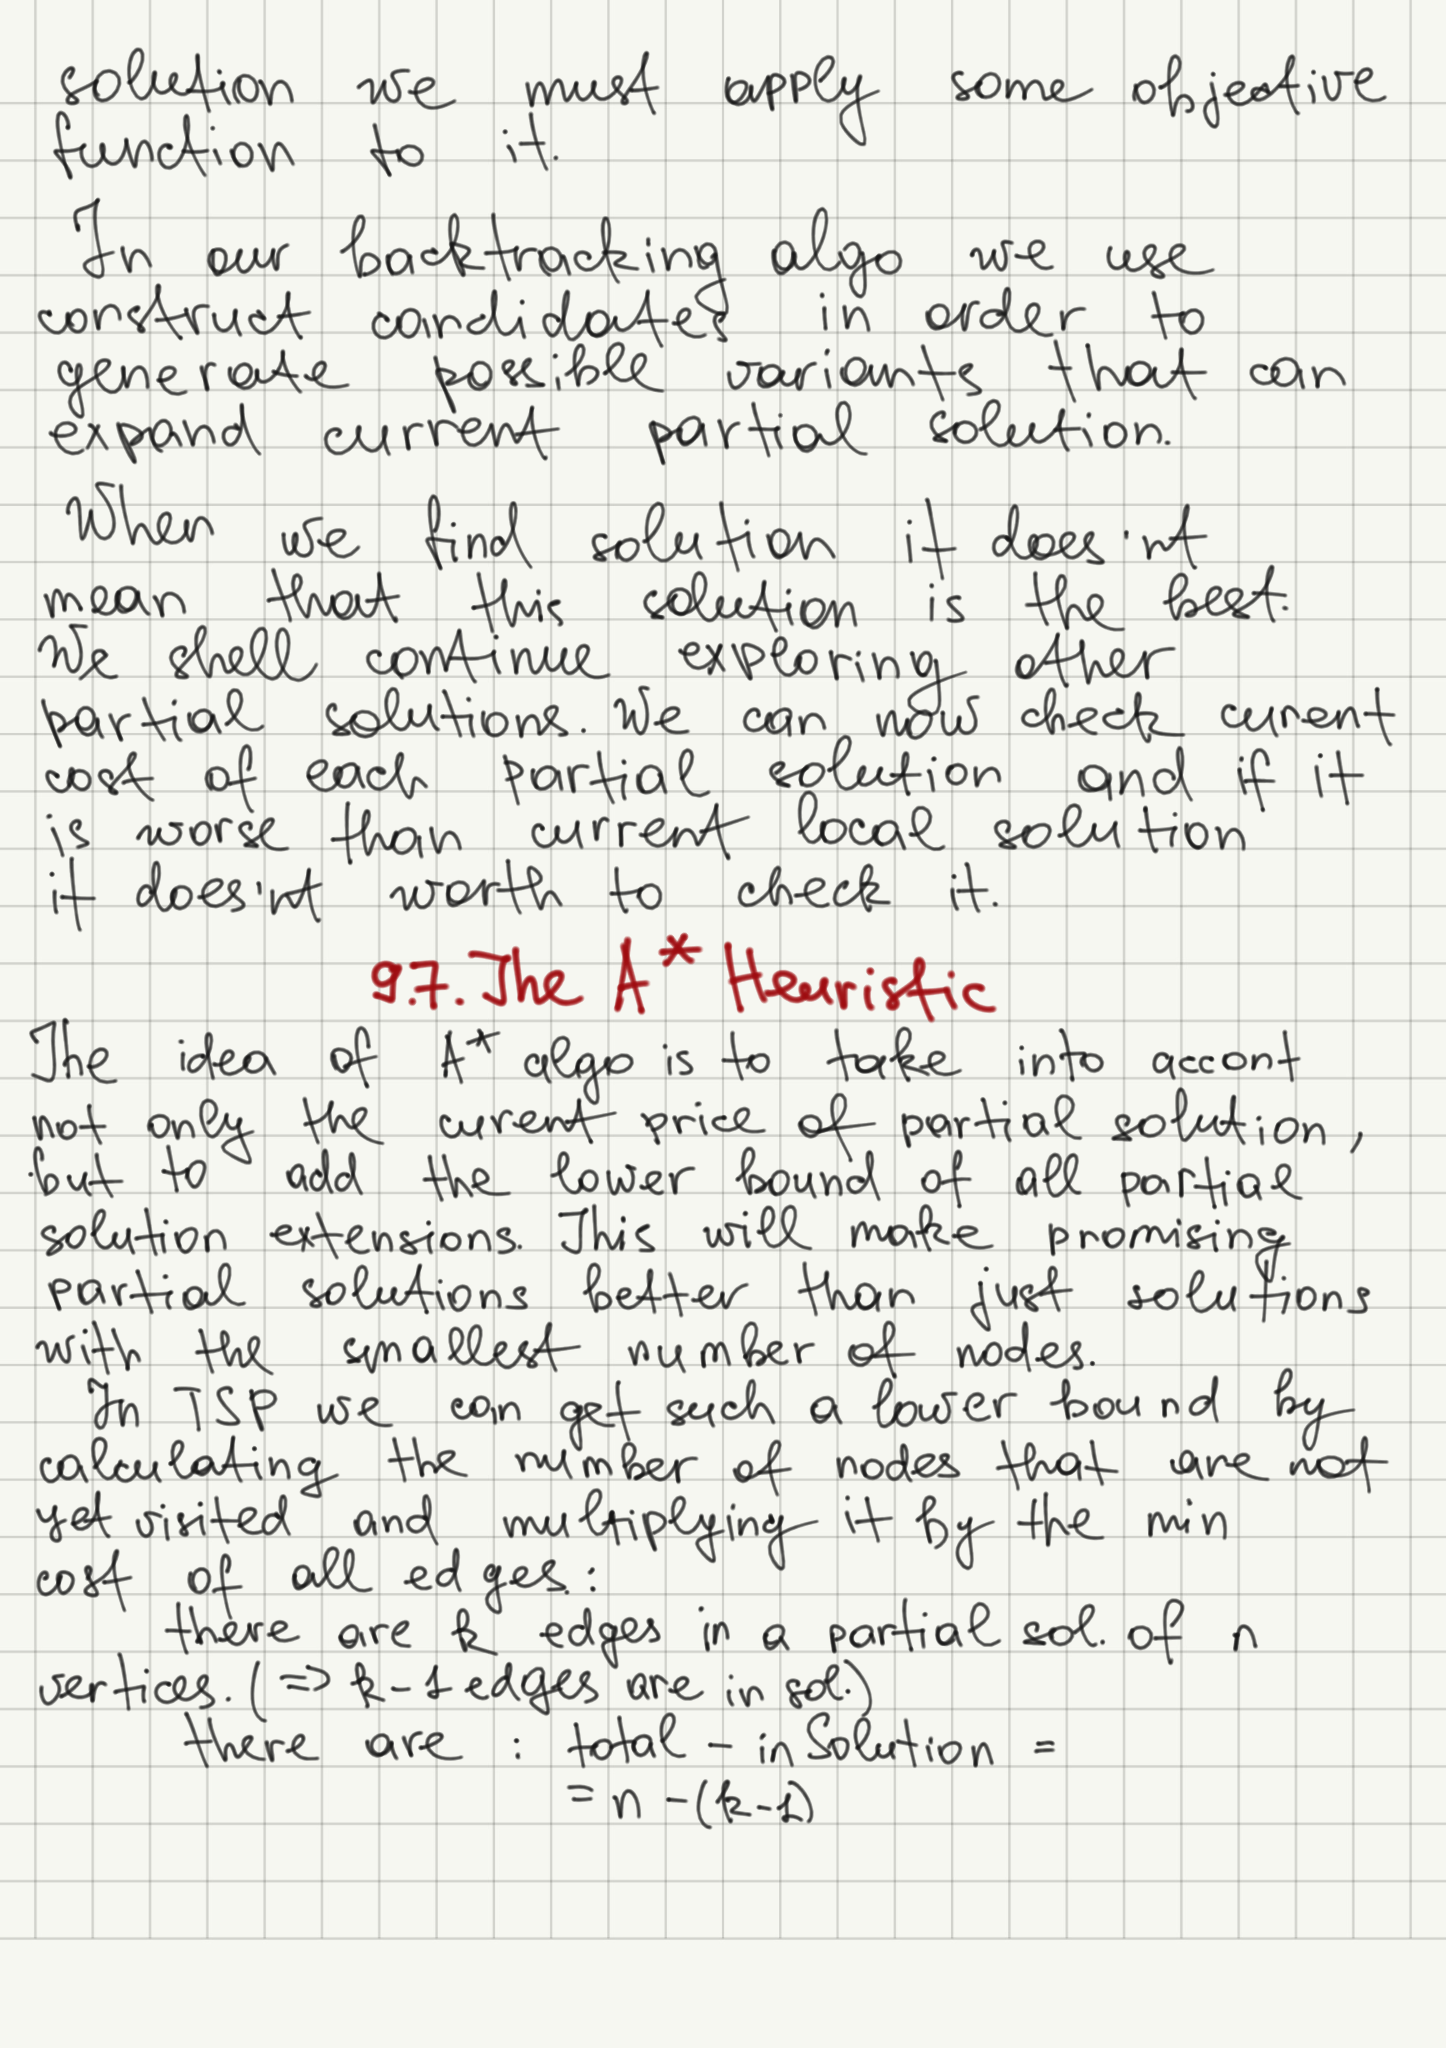 solution we must apply some objective
function to it.
In our backtracking algo we use
construct candidates in order to
generate possible variants that can
expand current partial solution.
When we find solution it does'nt
mean that this solution is the best.
We shell continue exploring other
partial solutions. We can now check curent
cost of each partial solution and if it
is worse than current local solution
it does'nt worth to check it.
9.7. The A* Heuristic
The idea of A* algo is to take into accont
not only the curent price of partial solution,
but to add the lower bound of all partial
solution extensions. This will make promising
partial solutions better than just solutions
with the smallest number of nodes.
In TSP we can get such a lower bound by
calculating the number of nodes that are not
yet visited and multiplying it by the min
cost of all edges.:
there are k edges in a partial sol. of n
vertices. (=> k-1 edges are in sol.)
there are : total - inSolution =
= n - (k-1)